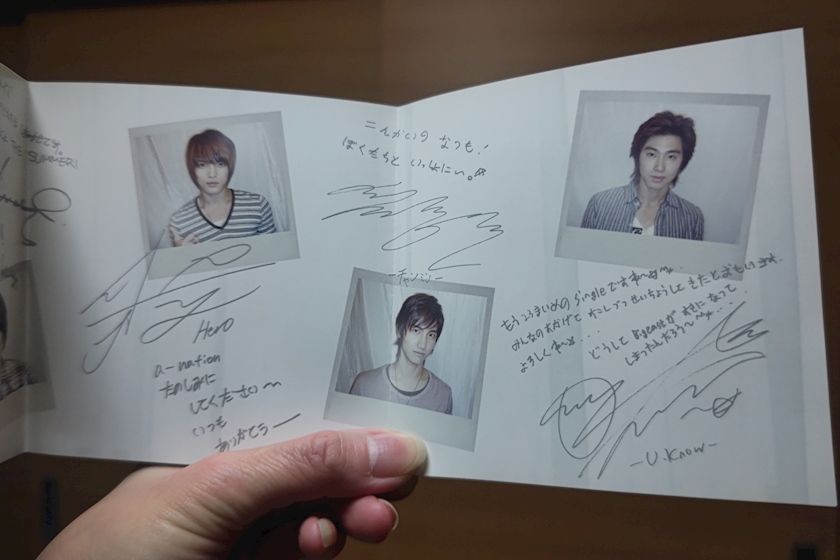 SUMMER!
Hero
a-nation
たのしみに
してください〜
いつも
ありがとうー
こんかいの なつも!
ぼくたちと いっしょにぃ。
-チャンミン-
もう つうまいめの Singleですね〜
みんなのおかげで すこしづつせいちょうしてきたとおもいます。
よろしくね〜・・・
どうして が すきになって
しまったんだろう〜・・・
-U.Know-